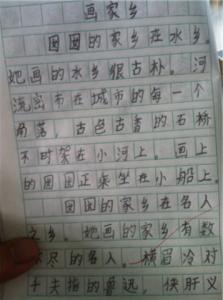 画家乡
圆圆的家乡在水乡。
她画的水乡很古朴。河
流密布在城市的每一个
角落，古色古香的石桥
不时架在小河上。画上
的圆圆正乘坐在小船上。
圆圆的家乡在名人
之乡。她画的家乡有数
不尽的名人。横眉冷对
千夫指的鲁迅，侠肝义